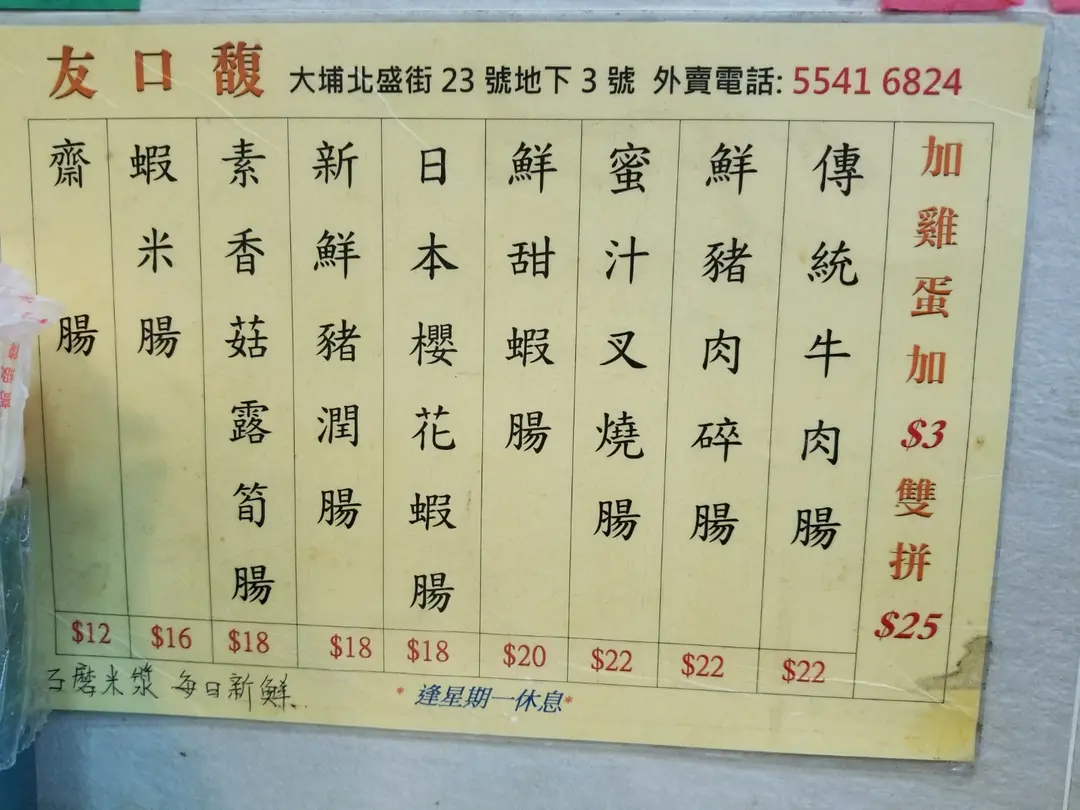 友口馥 大埔北盛街 23 號地下 3 號 外賣電話: 5541 6824
加雞蛋加$3雙拼$25
傳統牛肉腸 $22
鮮豬肉碎腸 $22
蜜汁叉燒腸 $22
鮮甜蝦腸 $20
日本櫻花蝦腸 $18
新鮮豬潤腸 $18
素香菇露筍腸 $18
蝦米腸 $16
齋腸 $12
石磨米漿 每日新鮮
*逢星期一休息*